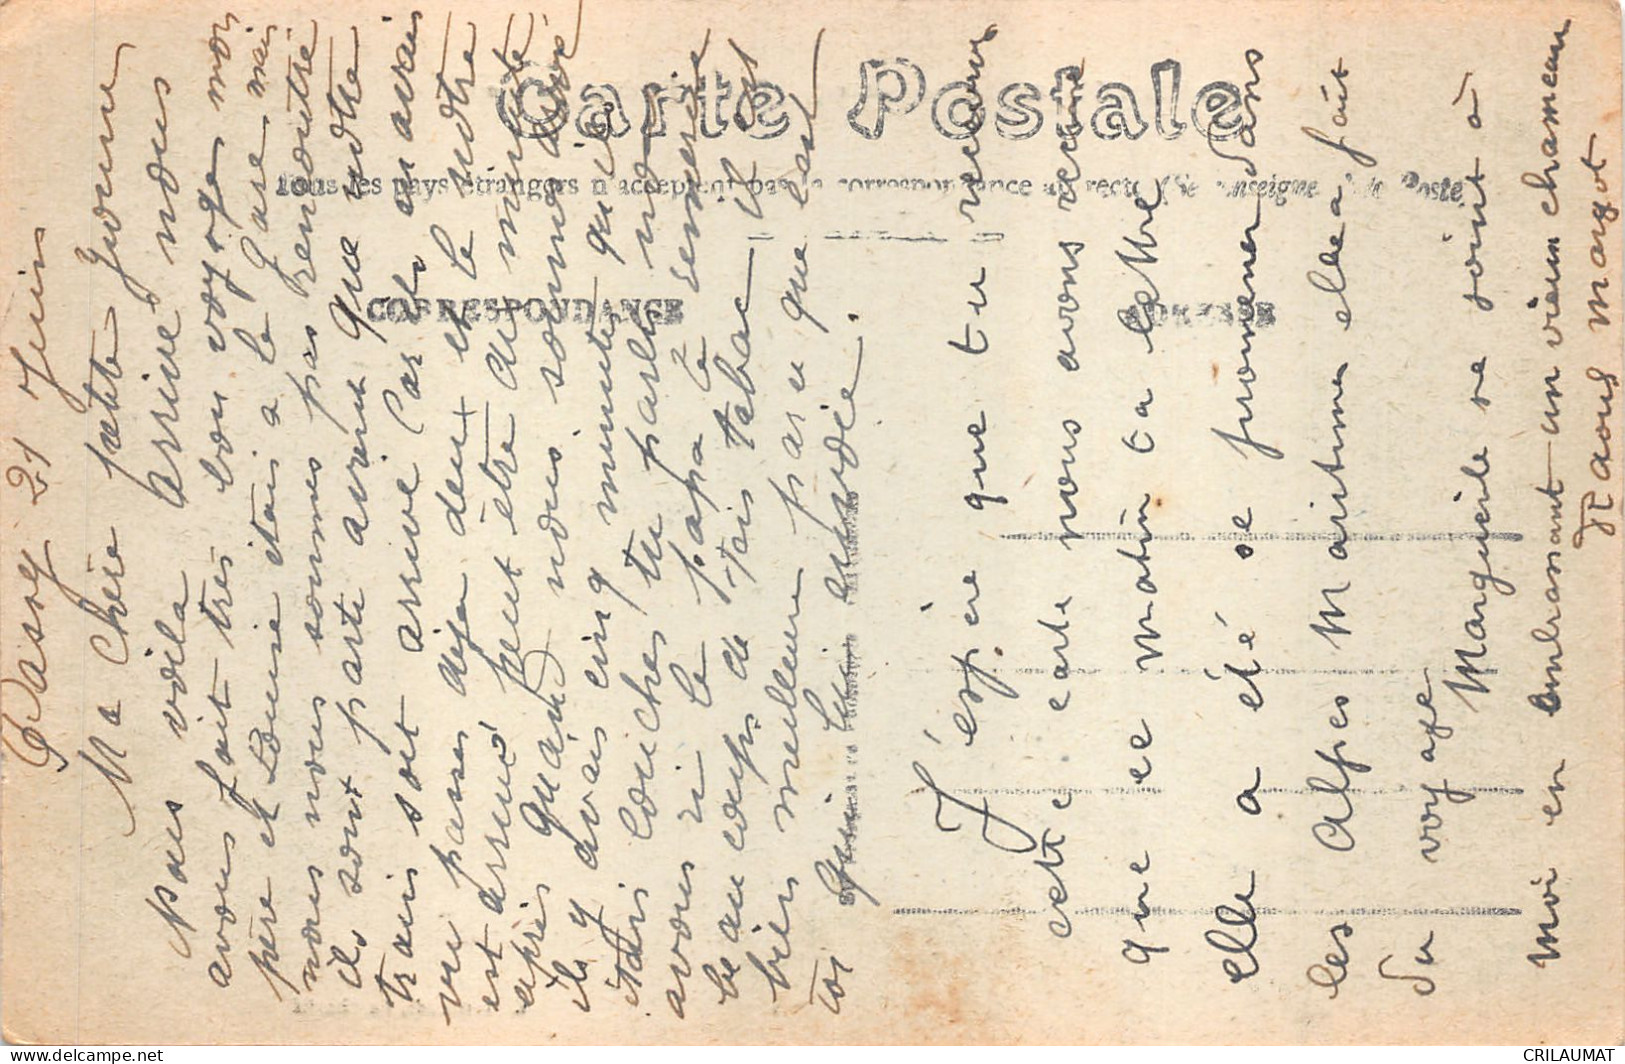 Carte Postale
Tous les pays étrangers n'acceptent pas la correspondance au recto (Se renseigner à la Poste)
CORRESPONDANCE
ADRESSE
Passy 21 Juin
Ma chère petite Yvonne
Nous voila arrivé, nous
avons fait tres bon voyage moi
père et Louise étais a la gare mais
nous nous sommes pas rencontré
ils sont parti avant que notre
train soit arrivé Car ils en avais
vu passer déja deux et le notre
est arrivé peut être dix minute
après Quand nous sommes arrivé
il y avais cinq minutes qu'ils
étais couches tu parles nous
avons ri le papa la remercie
beaucoup du tabac il est
bien meilleur que
J'éspère que tu recevras
cette carte nous avons recue
que ce matin ta lettre
elle a été se promener dans
les Alpes Maritimes elle a fait
du voyage
Marguerite se joint à
moi en embrassant un vieux chameau
Raoul Margot
CRILAUMAT